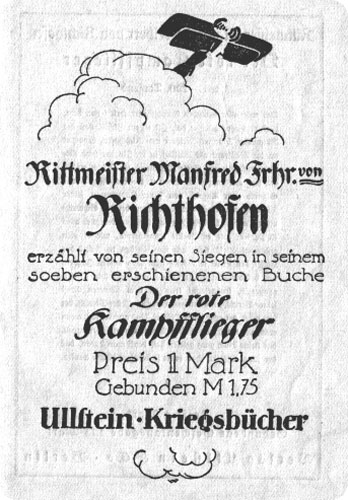 Rittmeister Manfred Frhr. von
Richthofen
erzählt von seinen Siegen in seinem
soeben erschienenen Buche
Der rote
Kampfflieger
Preis 1 Mark
Gebunden M 1,75
Ullstein·Kriegsbücher